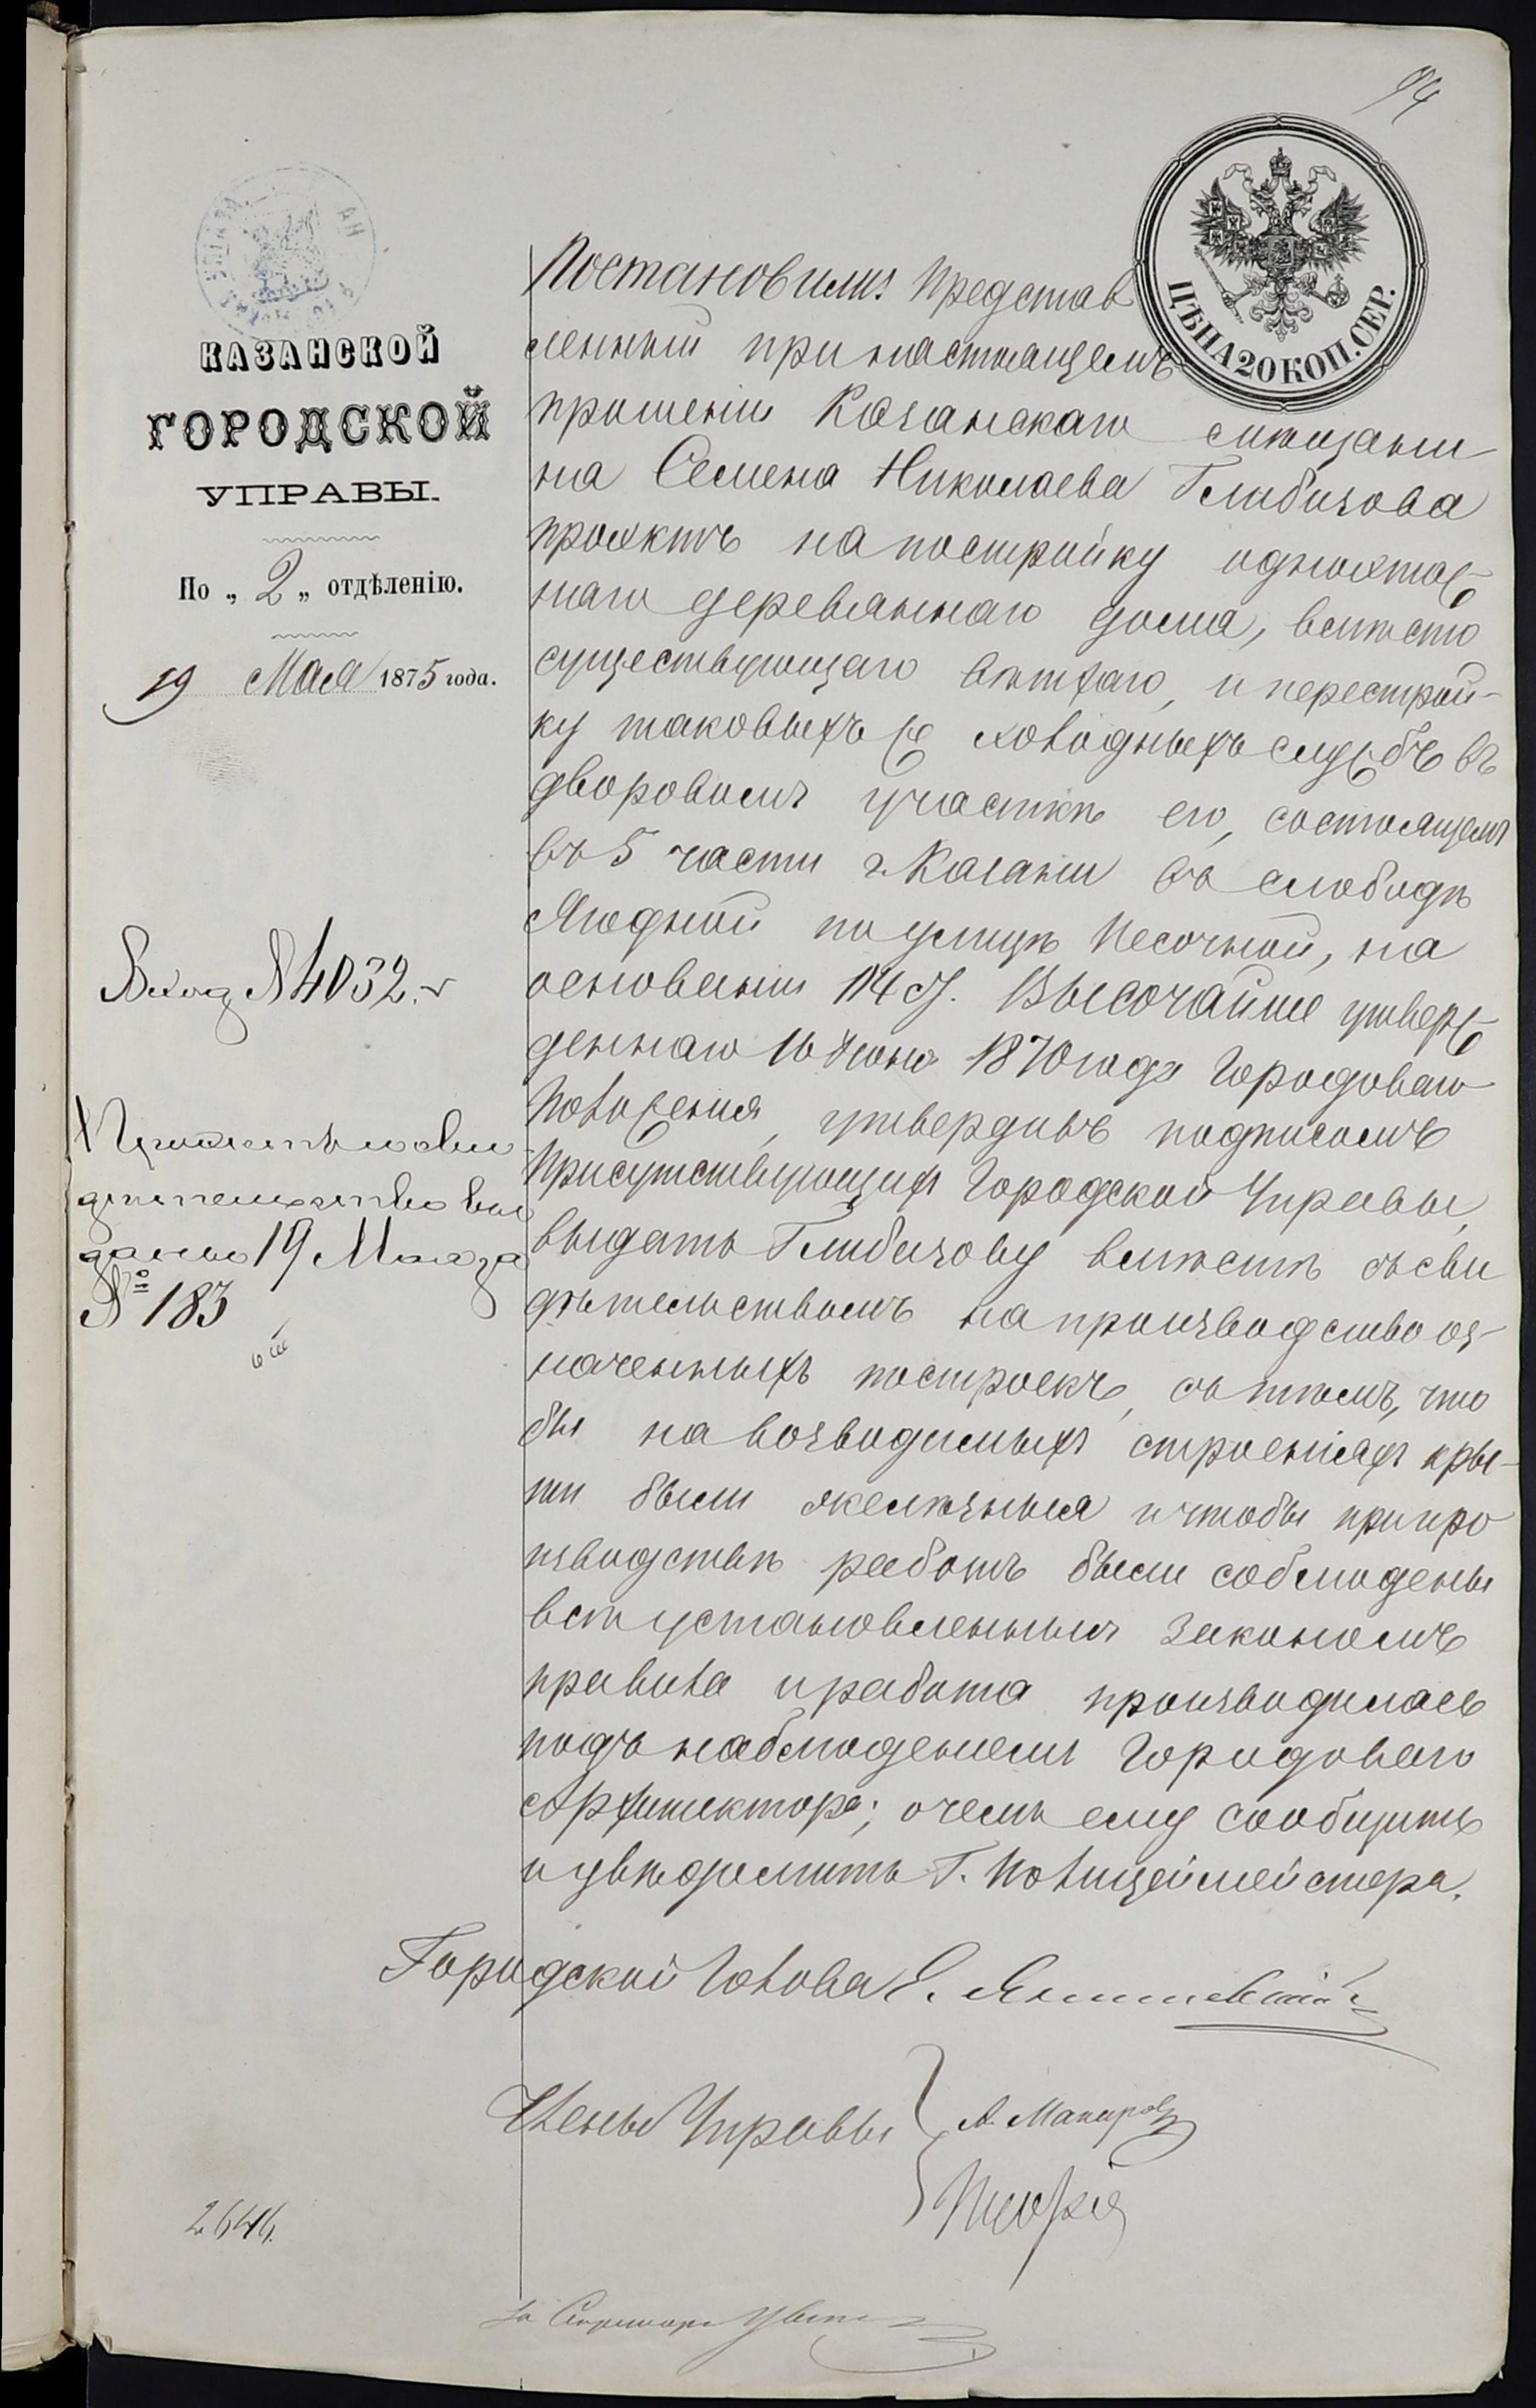 94
ЦѢНА 20 КОП. СЕР.
КАЗАНСКОЙ
ГОРОДСКОЙ
УПРАВЫ.
По „ 2 „ отдѣленію.
19 Мая 1875 года.
Вход № 4032.
свидѣтельство вы
дано 19 Мая за
№ 183
Постановили: Представ
ленный при настоящемъ
прошеніи Казанскаго мѣщани
на Семена Николаева
проэктъ на постройку одноэтаж-
наго деревяннаго дома, вмѣсто
существующаго ветхаго, и перестрой-
ку таковыхъ же холодныхъ службъ въ
дворовомъ участкѣ его, состоящемъ
въ 5 части г. Казани въ слободѣ
Ягодной по улицѣ Песочной, на
основаніи 114 ст. Высочайше утверж-
деннаго 16 Іюня 1870 года Городоваго
Положенія, утвердивъ подписомъ
присутствующихъ Городской Управы,
выдать вмѣстѣ съ сви
дѣтельствомъ на производство оз-
наченныхъ построекъ, съ тѣмъ, что
бы на возводимыхъ строеніяхъ кры-
ши были желѣзныя и чтобы при про
изводствѣ работъ были соблюдены
всѣ установленныя закономъ
правила и работа производилась
подъ наблюденіемъ Городоваго
Архитектора; о чемъ ему сообщить
и увѣдомить Г. Полицеймейстера.
Городской Голова Е. Янишевскій
Члены Управы А. Макаров
2644.
За Секретаря